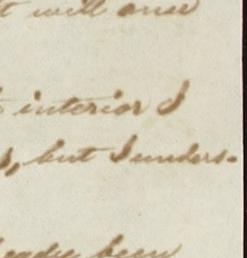 t will over
interior I
, but I unders-
been